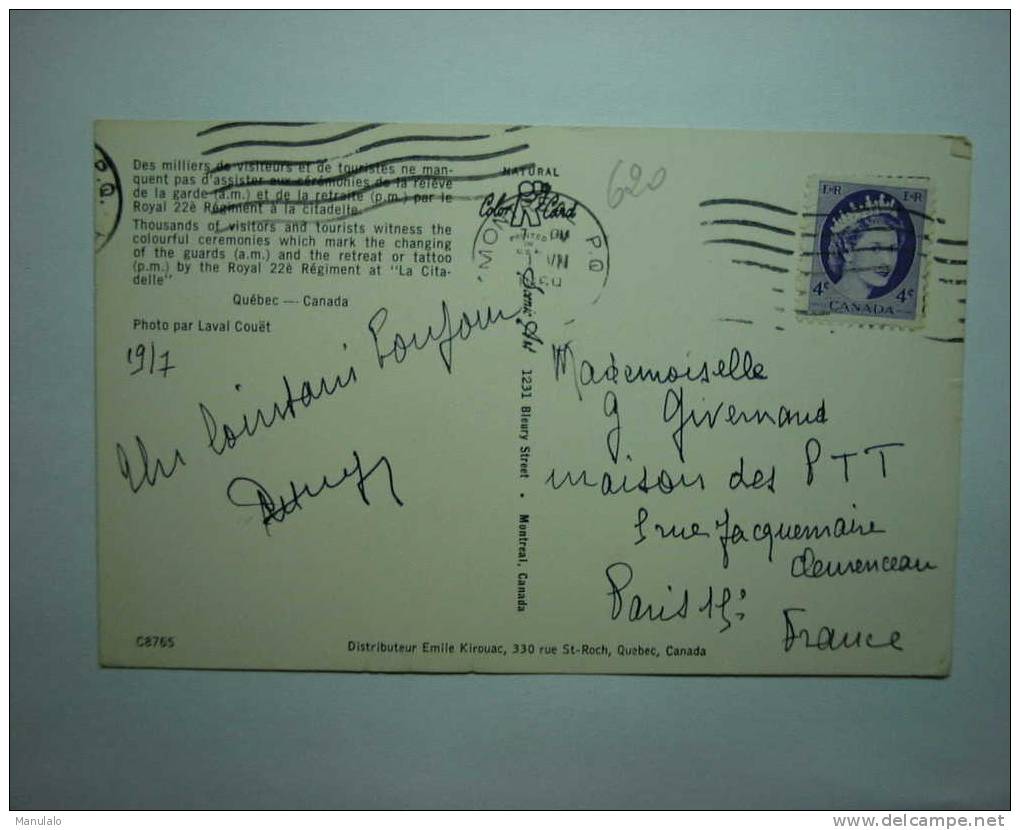 Des milliers de visiteurs et de touristes ne man-
quent pas d'assister aux cérémonies de la relève
de la garde (a.m.) et de la retraite (p.m.) par le
Royal 22è Régiment à la citadelle.
Thousands of visitors and tourists witness the
colourful ceremonies which mark the changing
of the guards (a.m) and the retreat or tattoo
(p.m.) by the Royal 22è Régiment at "La Cita-
delle"
Québec — Canada
Photo par Laval Couët
19/7
Un lointain Bonjour
C8765
NATURAL
Color Card
PRINTED
IN
MON P.Q
VII
Scenic Art 1231 Bleury Street • Montreal, Canada
620
E R E R
4c 4c
CANADA
Mademoiselle
G Givernaud
maison des PTT
5 rue Jacquemaire
Clemenceau
Paris 15è
France
Distributeur Emile Kirouac, 330 rue St-Roch, Quebec, Canada
Manulalo
www.delcampe.net